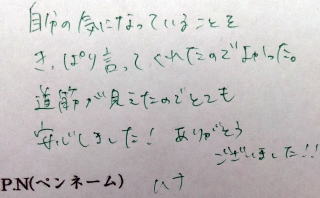 自分の気になっていることを
きっぱり言ってくれたのでよかった。
道筋が見えたのでとても
安心しました！ ありがとう
ございました！！
P.N(ペンネーム) ハナ